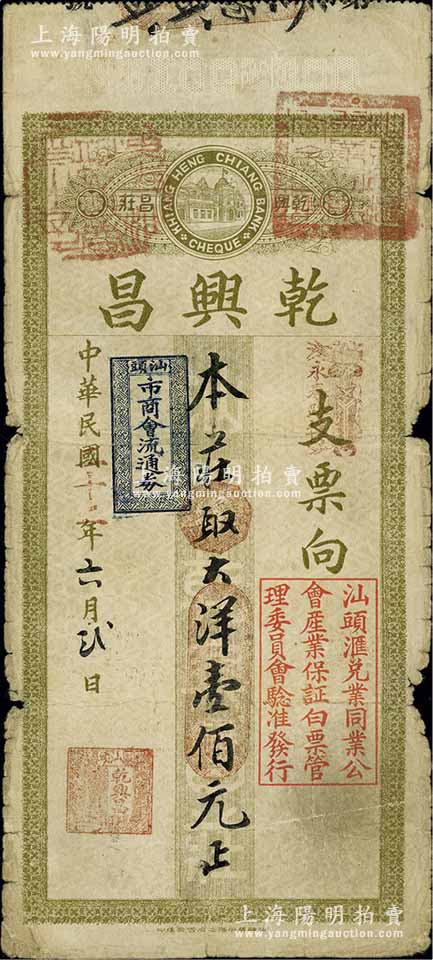 上海陽明拍賣
www.yangmingauction.com
KHIANG HENG CHIANG BANK
CHEQUE
乾興
昌莊
乾興昌
支票向
本莊取大洋壹佰元正
汕頭
市商會流通券
中華民國二十二年六月弍日
汕頭滙兌業同業公
會產業保証白票管
理委員會驗准發行
上海陽明拍賣
www.yangmingauction.com
上海陽明拍賣
www.yangmingauction.com
上海陽明拍賣
www.yangmingauction.com
上海陽明拍賣
www.yangmingauction.com